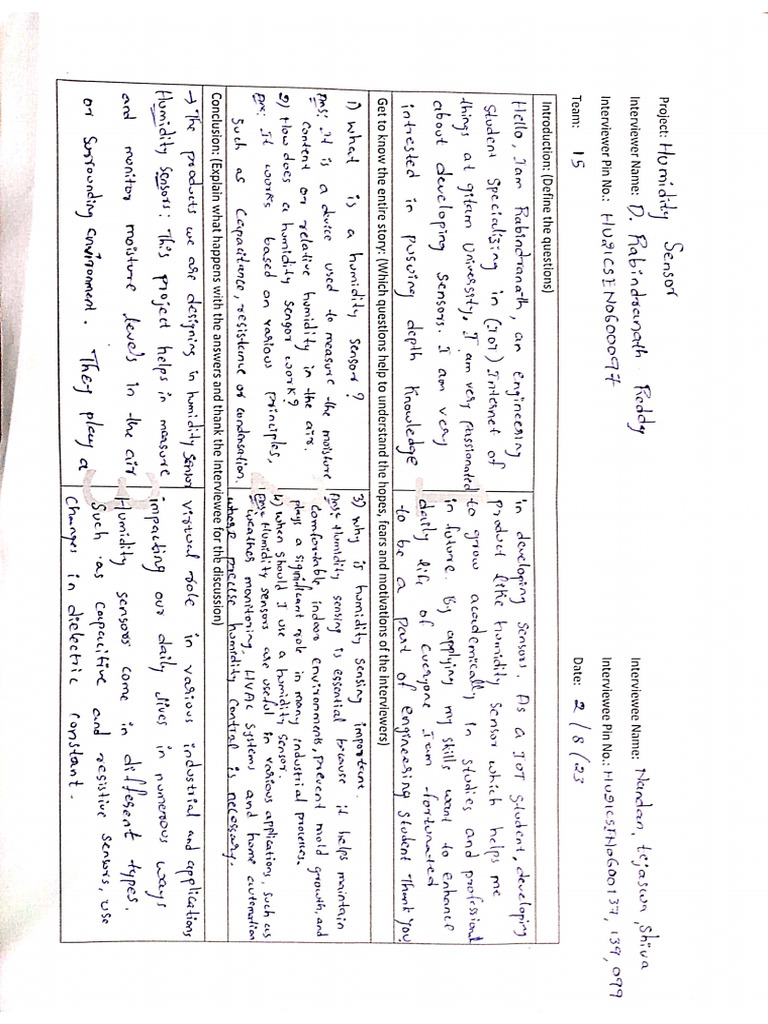 Project: Humidity Sensor
Interviewer Name: D. Rabindranath Reddy
Interviewee Name: Nandan, tejaswi, Shiva
Interviewer Pin No.: HU21CSEN0600097
Interviewee Pin No.: HU21CSEN0600137, 139, 099
Team: 15
Date: 2/8/23
Introduction: (Define the questions)
Hello, I am Rabindranath, an engineering
Student Specialising in (IOT) Internet of
things at gitam University. I am very passionated
about developing sensors. I am very
intrested in pusuing depth knowledge
in developing Sensors. As a IOT Student, developing
product like humidity Sensor which helps me
to grow academically in studies and professional
in future. By applying my skills want to enhance
daily life of everyone I am fortunated
to be a part of engineering Student Thank you
Get to know the entire story: (Which questions help to understand the hopes, fears and motivations of the interviewers)
1) what is a humidity sensor?
Ans: It is a device used to measure the moisture
content or relative humidity in the air.
2) How does a humidity sensor work?
Ans: It works based on various principles,
such as capacitance, resistence or condensation.
3) why is humidity sensing important.
Ans: Humidity sensing is essential because it helps maintain
comfortable indoor environments, prevent mold growth, and
plays a significant role in many industrial processes.
4) when should I use a humidity sensor.
Ans: Humidity sensors are useful in various applications, such as
weather monitoring, HVAC Systems and home automation
where precise humidity control is necessary.
Conclusion: (Explain what happens with the answers and thank the Interviewee for the discussion)
→ The products we are designing in humidity sensor
Humidity sensors: This project helps in measure
and monitor moisture levels in the air
or surrounding environment. They play a
virtual role in various industrial and applications
impacting our daily lives in numerous ways
Humidity sensors come in different types.
Such as capacitive and resistive sensors, use
changes in dielectric constant.